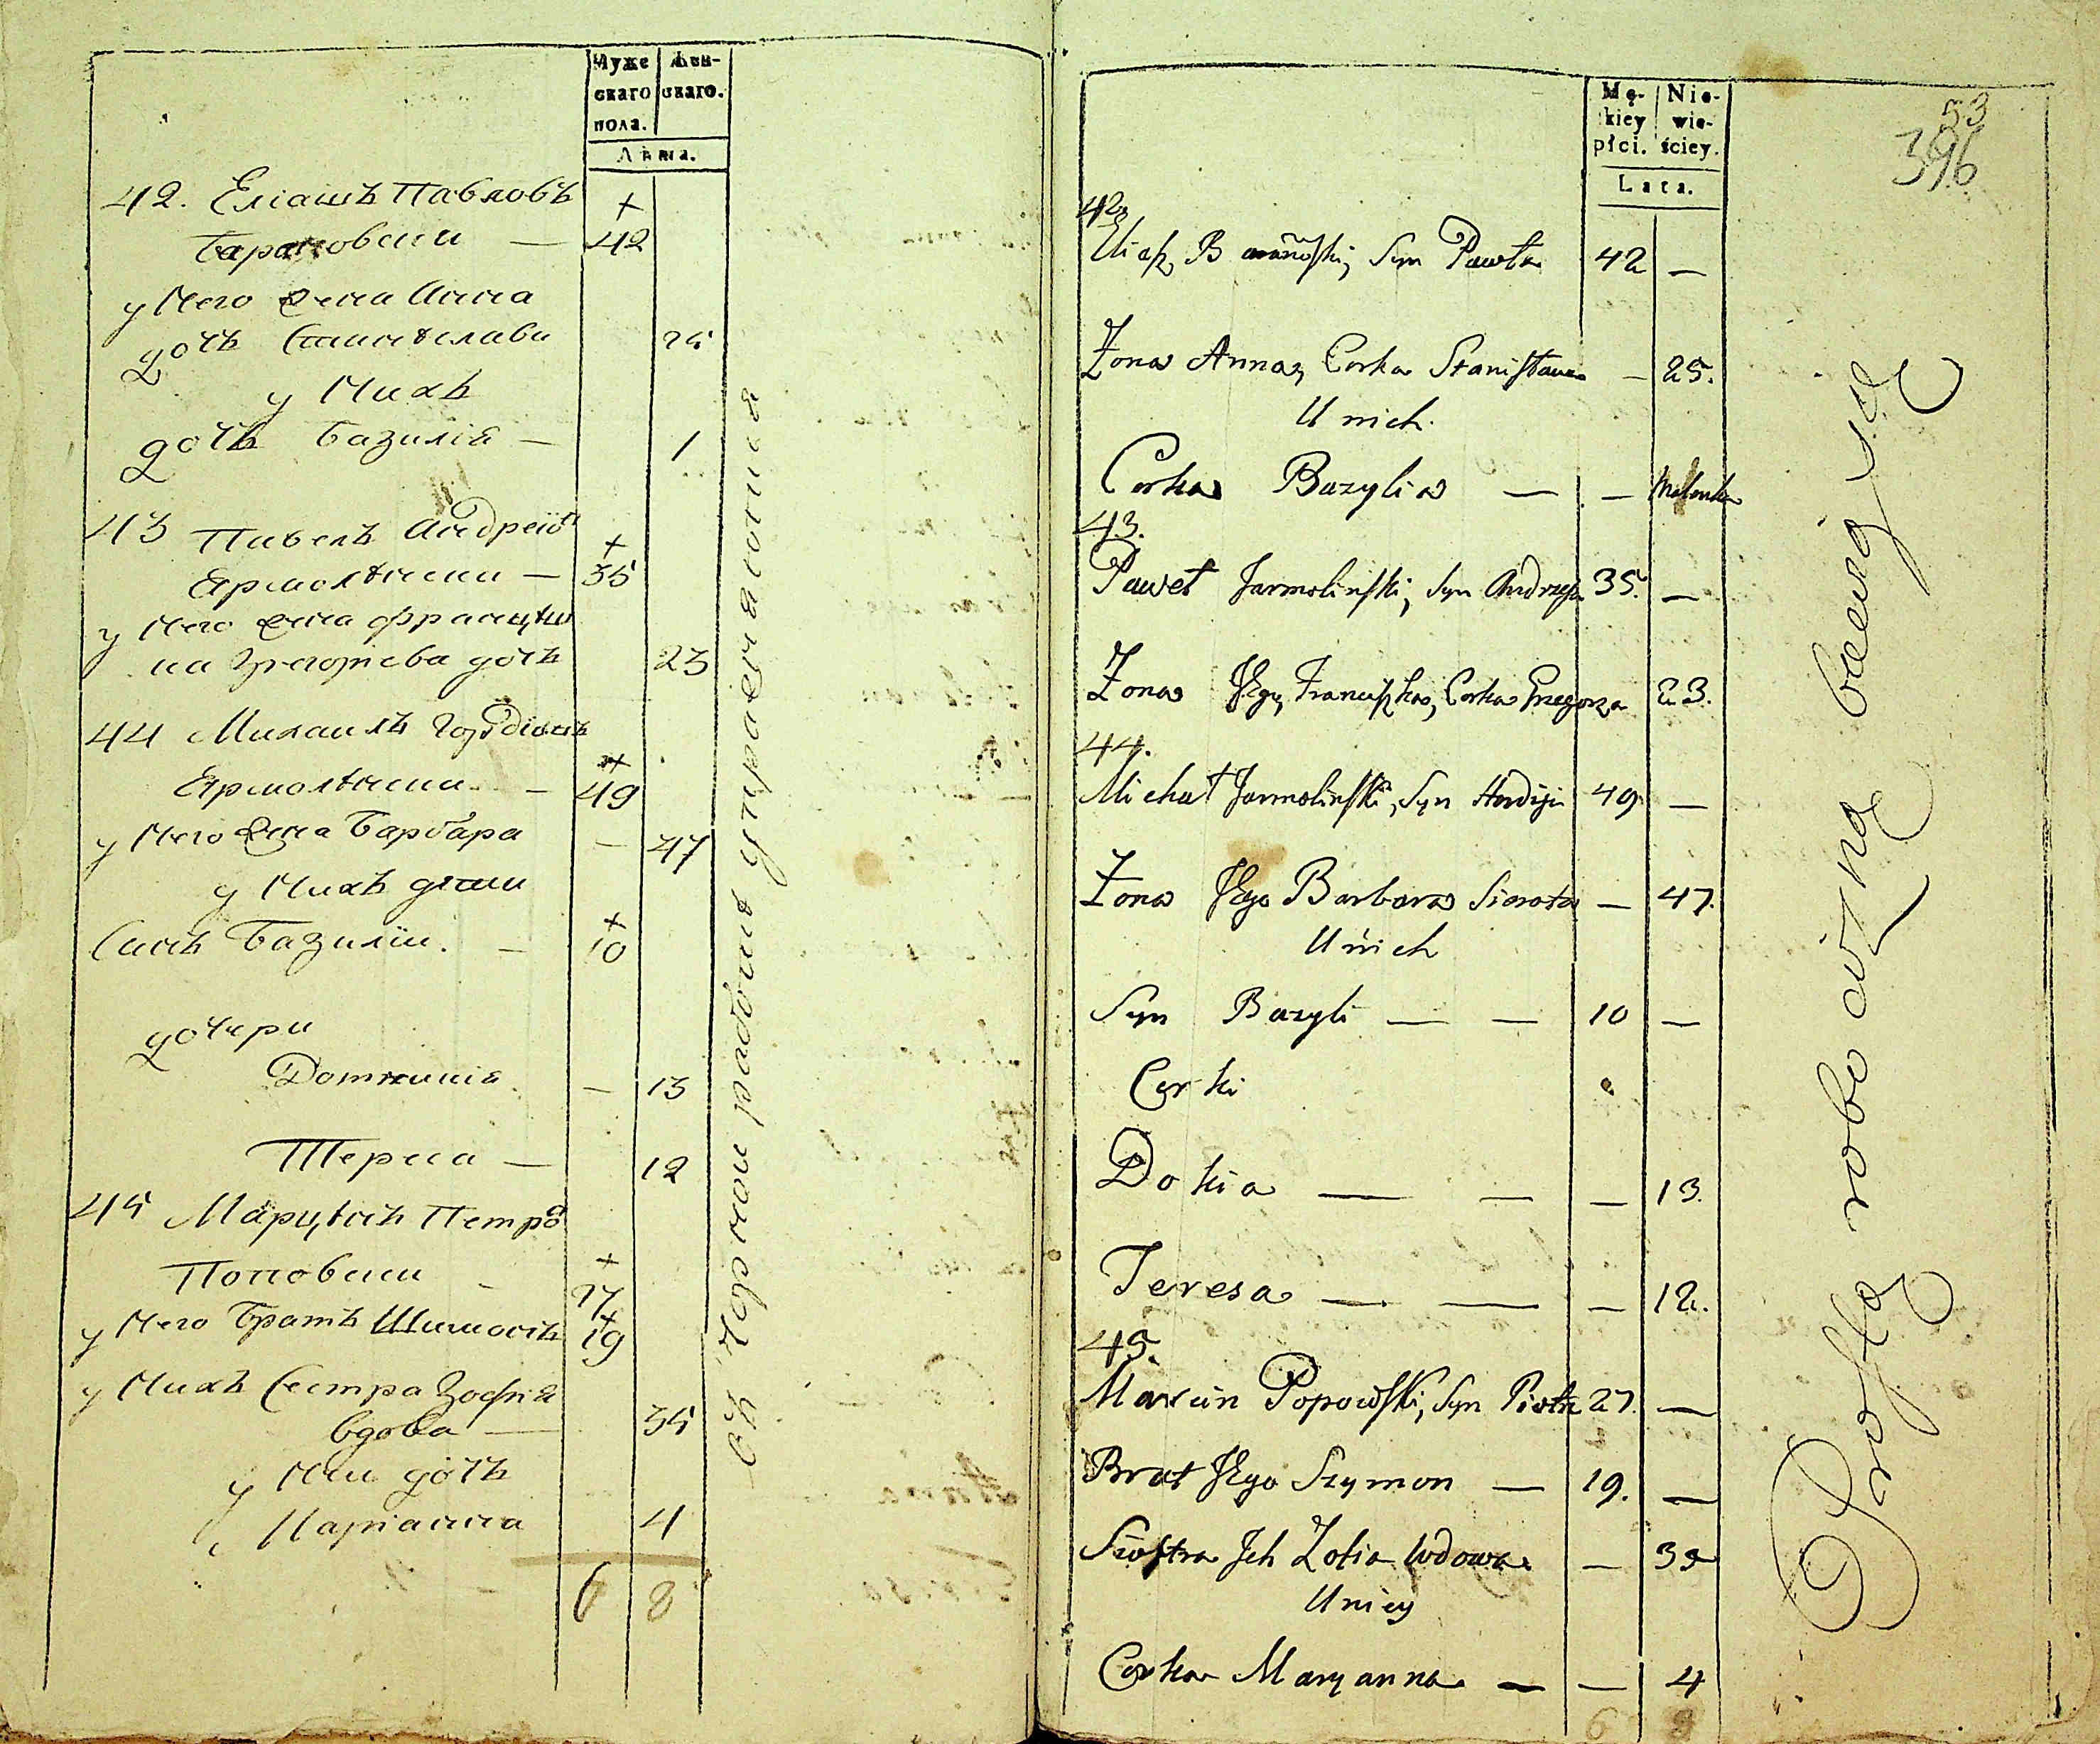 Муже
скаго
пола.
Жен-
скаго.
Лѣта.
42. Еліашъ Павловъ +
Барановски — 42
у Него жена Анна
дочъ Станѣслава 25
у Нихъ
дочъ Базилія — 1
43 Павелъ Андреіо +
Ярмолѣнски — 35
у Него жена Францѣш
ка Грегорiева дочъ 23
44 Михаилъ Гордіовъ +
Ярмолѣнски — 49
у Него жена Барбара — 47
у Нихъ дѣти +
Синъ Базиліи. — 10
дочери
Домникія — 13
Тереса — 12
45 Марцѣнъ Петро
Поповски — + 27
у Него братъ Шимонъ + 19
у Нихъ Сестра Зофія
вдова — 35
у Ней дочъ
Маріанна 4
6 8
въ Чорной работѣ упражняются
53
396
Mę-
kiey
płci.
Nie-
wie-
ściey.
Lata.
42.
Eliasz Baranowski, Syn Pawła 42 —
Żona Anna, Corka Stanisława — 25.
U nich.
Corka Bazylia — — Malenka
43.
Paweł Jarmolinski, Syn Andrzeja 35. —
Żona Jego, Franciszka, Corka Grzegorza 23.
44.
Michał Jarmolinski, Syn Hordija 49 —
Żona Jego Barbara Sierota — 47.
U nich
Syn Bazyli — — 10 —
Corki
Dokia — — — 13.
Teresa — — — 12.
45.
Marcin Popowski, Syn Piotra 27. —
Brat Jego Szymon — 19. —
Siostra Ich Zofia Wdowa — 35
U niey
Corka Maryanna — — 4
6 8
Prostą robocizną bawią się